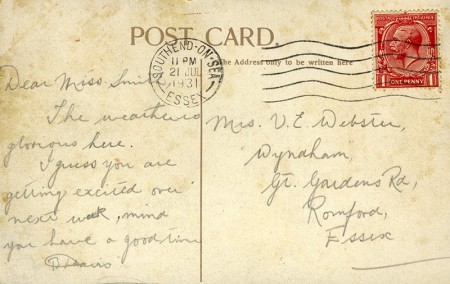 POST CARD.
The Address only to be written here
SOUTHEND-ON-SEA
11 PM
21 JUL
1931
ESSEX
POSTAGE REVENUE
1 ONE PENNY 1
Dear Miss Smith
The weather is
glorious here.
I guess you are
getting excited over
next week, mind
you have a good time
Mrs. V. E. Webster,
Wyndham,
Gt. Gardens Rd,
Romford,
Essex